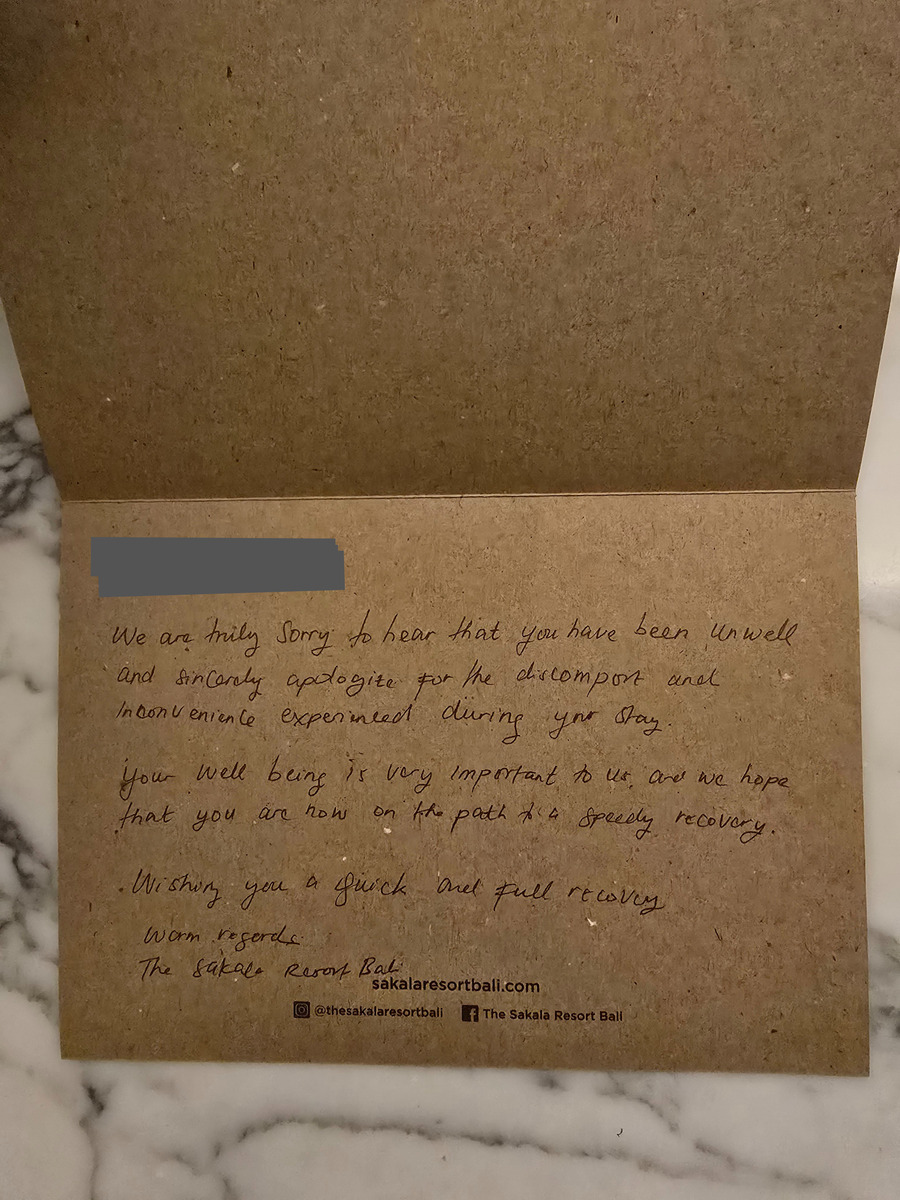 We are truly sorry to hear that you have been unwell
and sincerely apologize for the discomport and
inconvenience experienced during your stay.
Your well being is very important to us, and we hope
that you are now on the path to a speedy recovery.
Wishing you a quick and full recovery
Warm regards
The Sakala Resort Bali
sakalaresortbali.com
@thesakalaresortbali The Sakala Resort Bali